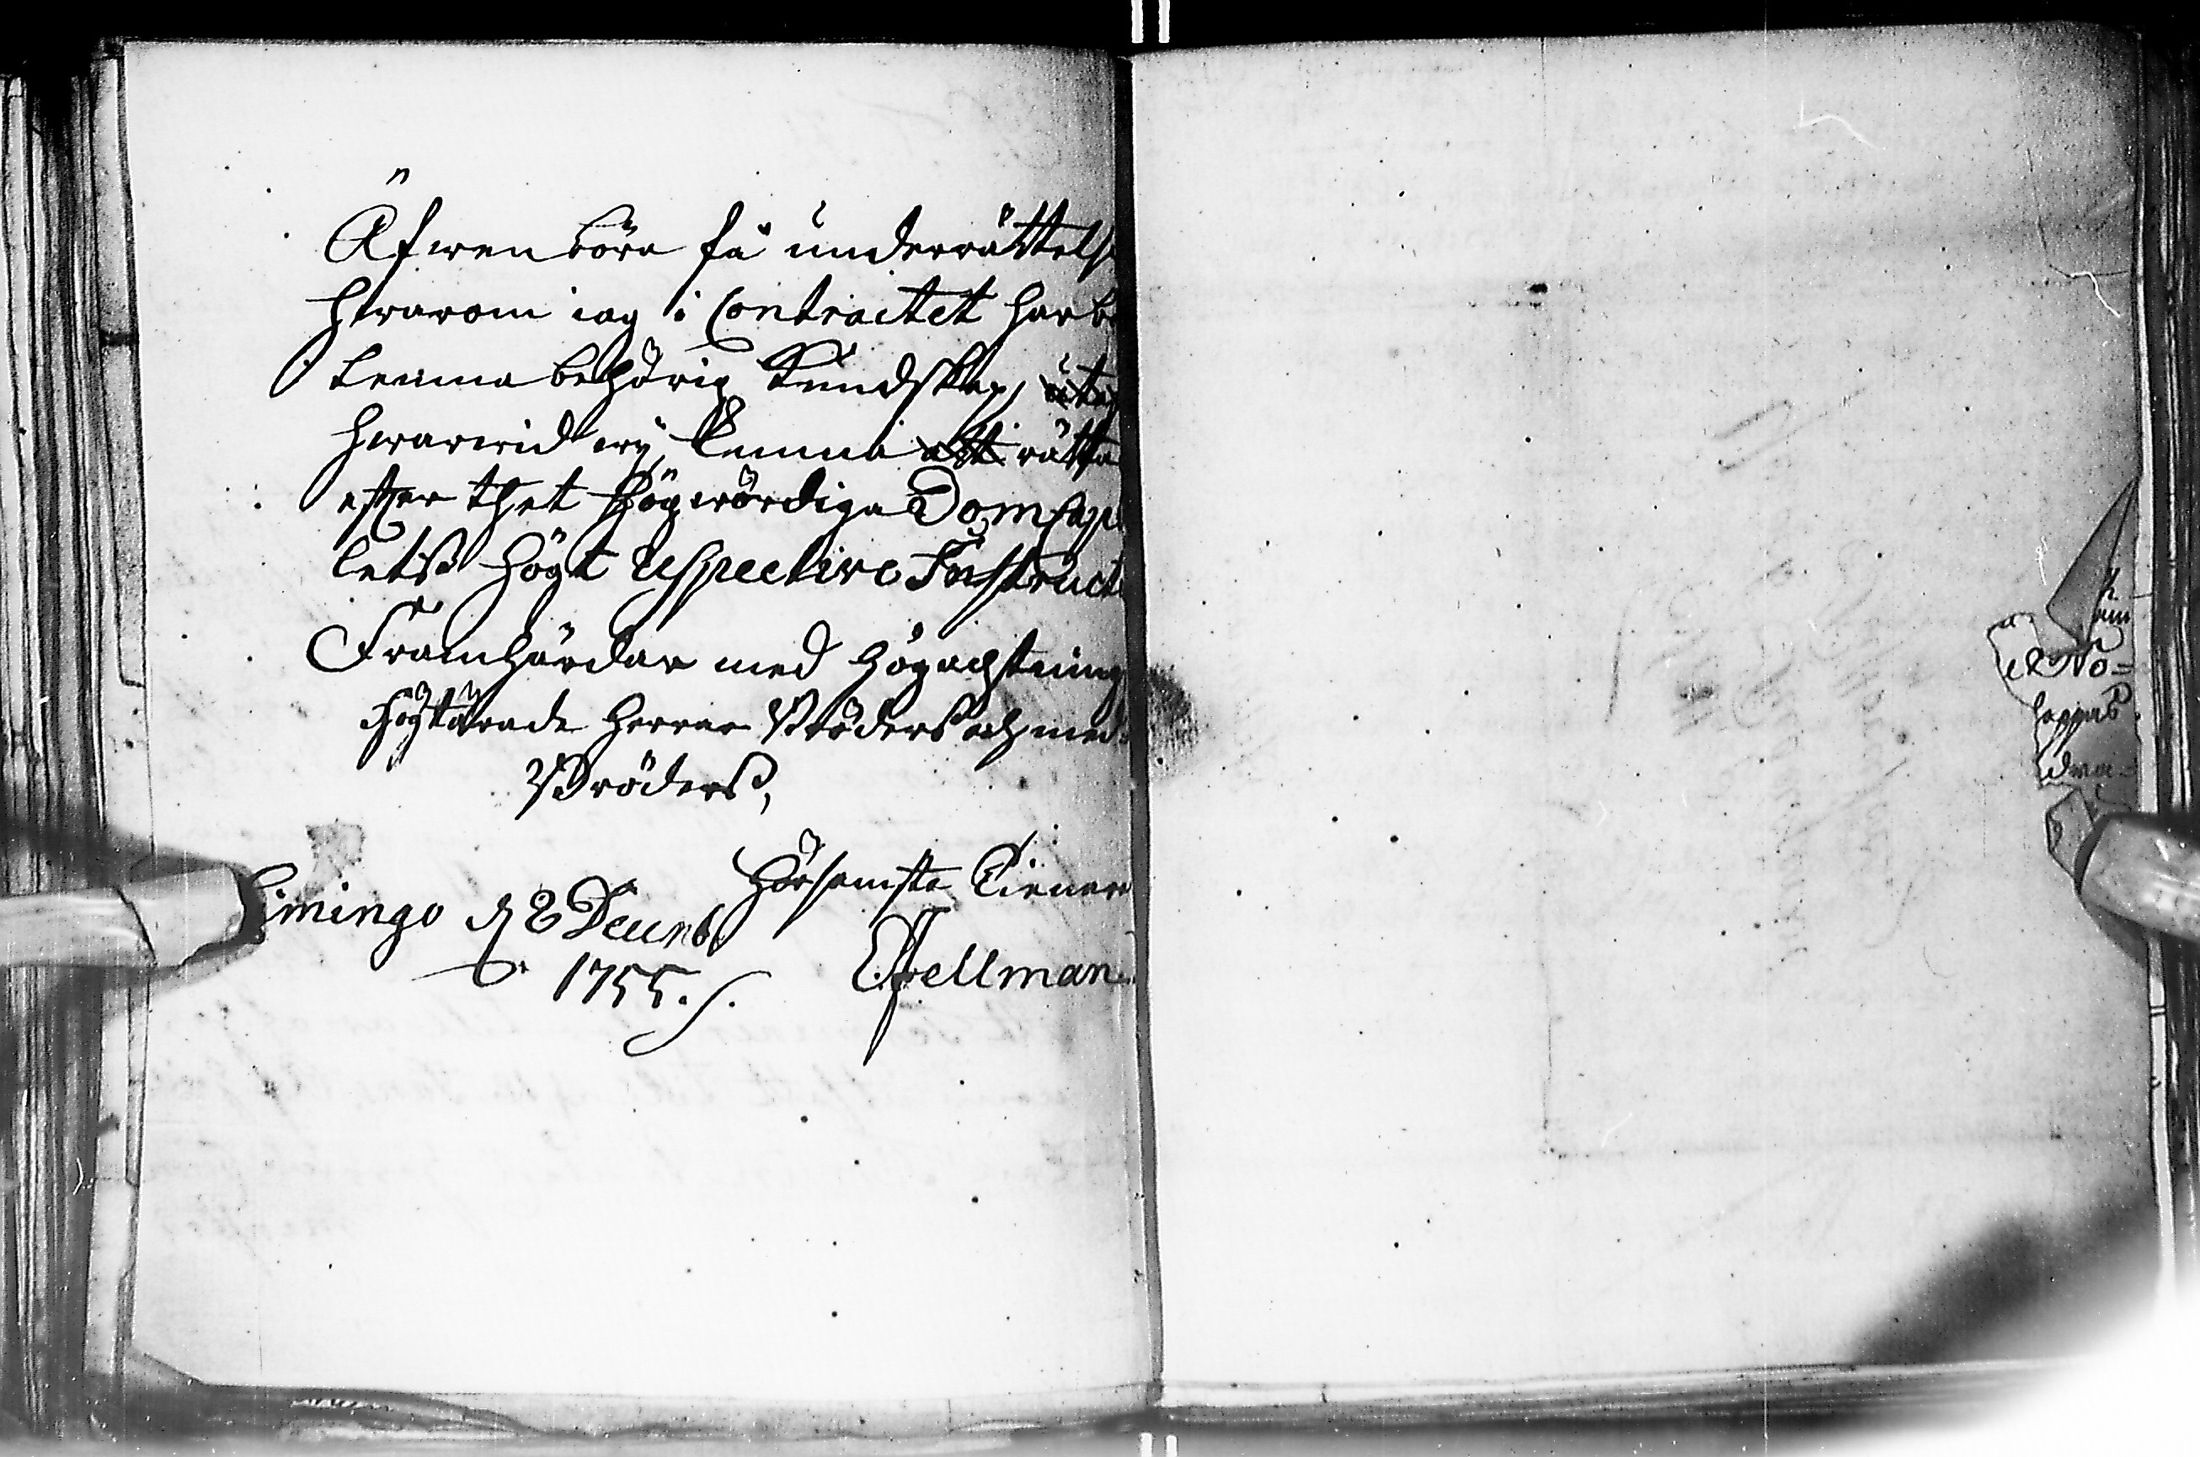 Äfwen böra få underrättelse
hwarom iag i Contractet har be
kenna behörig Kundskap,
hwarwid wij kunna rätta
efter thet Högwördiga DomCapi
letß Högt respective Instructi
Framhärdar med Högachtning
Högtärade Herrar Bröders och med
Bröders,
Limingo d 8 Decemb
Hörsamste Tienare
1755.
EFellman